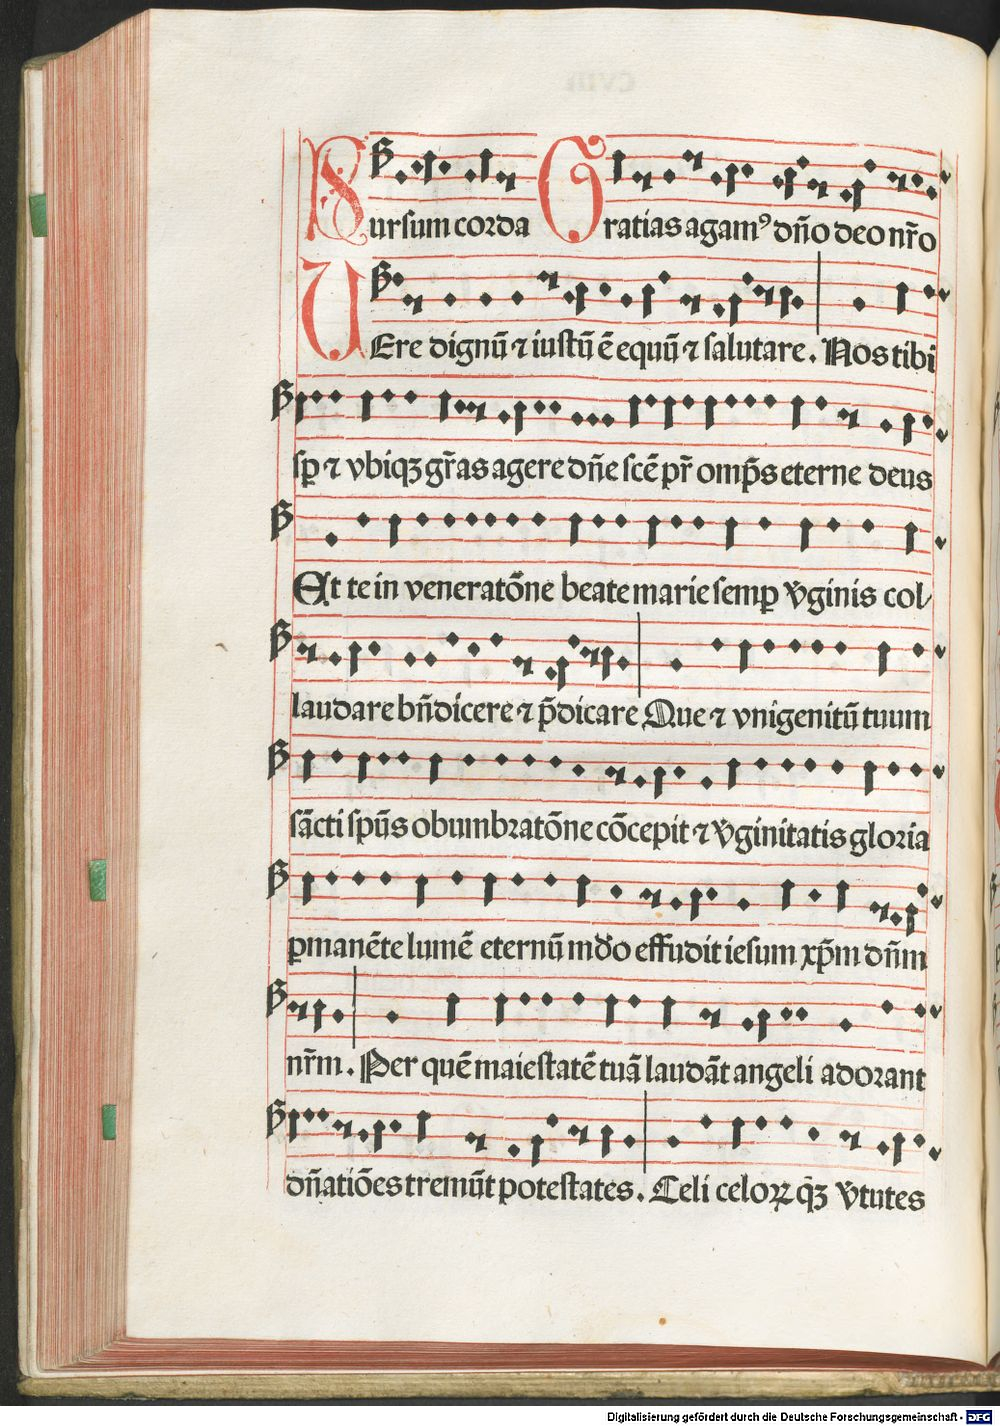 Sursum corda Gratias agamꝰ dño deo nr̄o
VEre dignū ⁊ iustū ē equū ⁊ salutare. Nos tibi
sꝑ ⁊ vbiqꝫ gr̄as agere dn̄e scē pr̄ omp̄s eterne deus
Et te in veneratōne beate marie semꝑ v̄ginis col⸗
laudare bn̄dicere ⁊ p̄dicare Que ⁊ vnigenitū tuum
sācti spūs obumbratōne cōcepit ⁊ v̄ginitatis gloria
ꝑmanēte lumē eternū mūdo effudit iesum xp̄m dn̄m
nr̄m. Per quē maiestatē tuā laudāt angeli adorant
dn̄atiōes tremūt potestates. Celi celoꝝ qꝫ v̄tutes
Digitalisierung gefördert durch die Deutsche Forschungsgemeinschaft - DFG